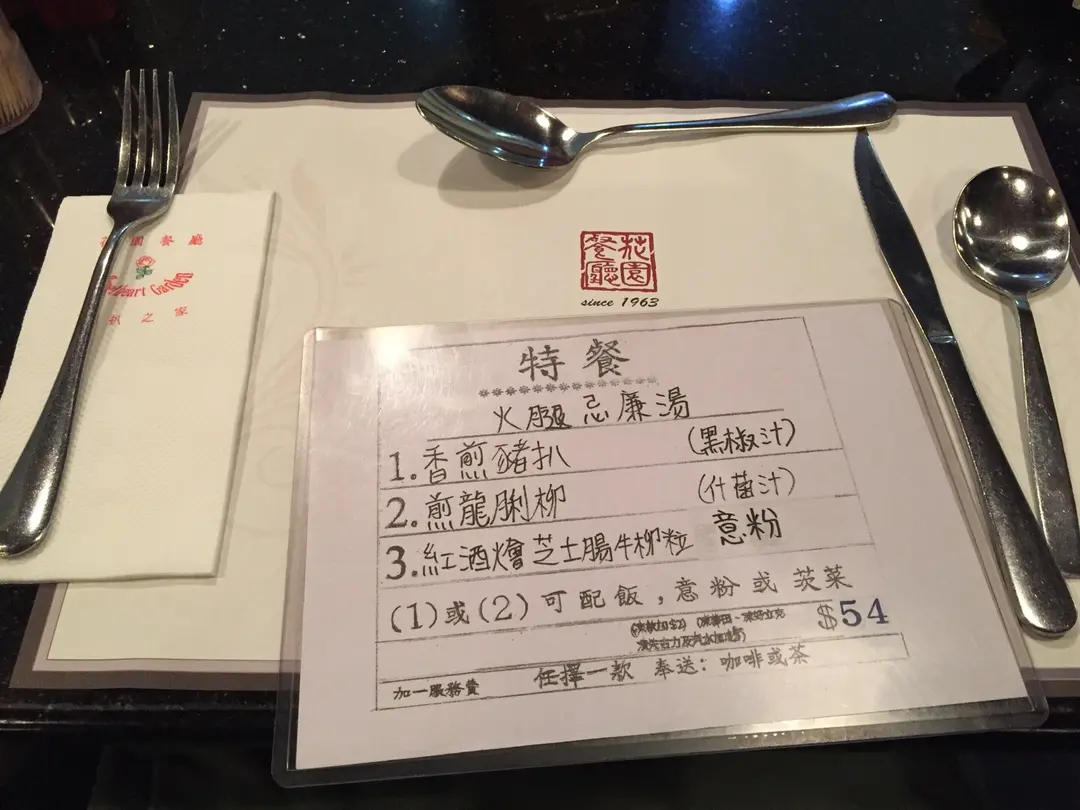 園餐廳
Garden
扒之家
花園餐廳
since 1963
特餐
火腿忌廉湯
1.香煎豬扒 (黑椒汁)
2.煎龍脷柳 (什菌汁)
3.紅酒燴芝士腸牛柳粒 意粉
(1)或(2)可配飯,意粉或茨菜
$54
加一服務費 任擇一款 奉送:咖啡或茶